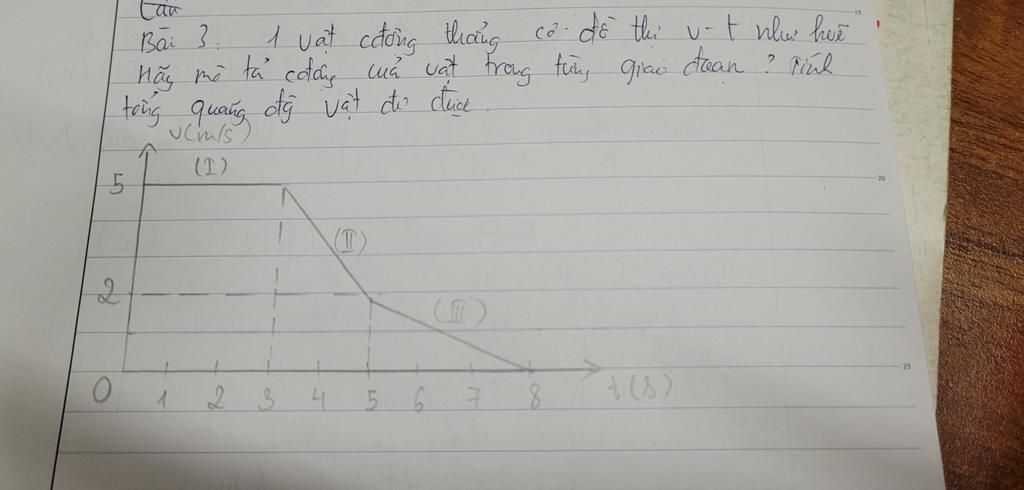 Câu
Bài 3. 1 vật cđộng thẳng có đồ thị v-t như hvẽ
Hãy mô tả cđộng của vật trong từng giai đoạn? Tính
tổng quãng đg vật đi được.
v(m/s)
(I)
5
(II)
2
(III)
0 1 2 3 4 5 6 7 8 t(s)
15
20
25